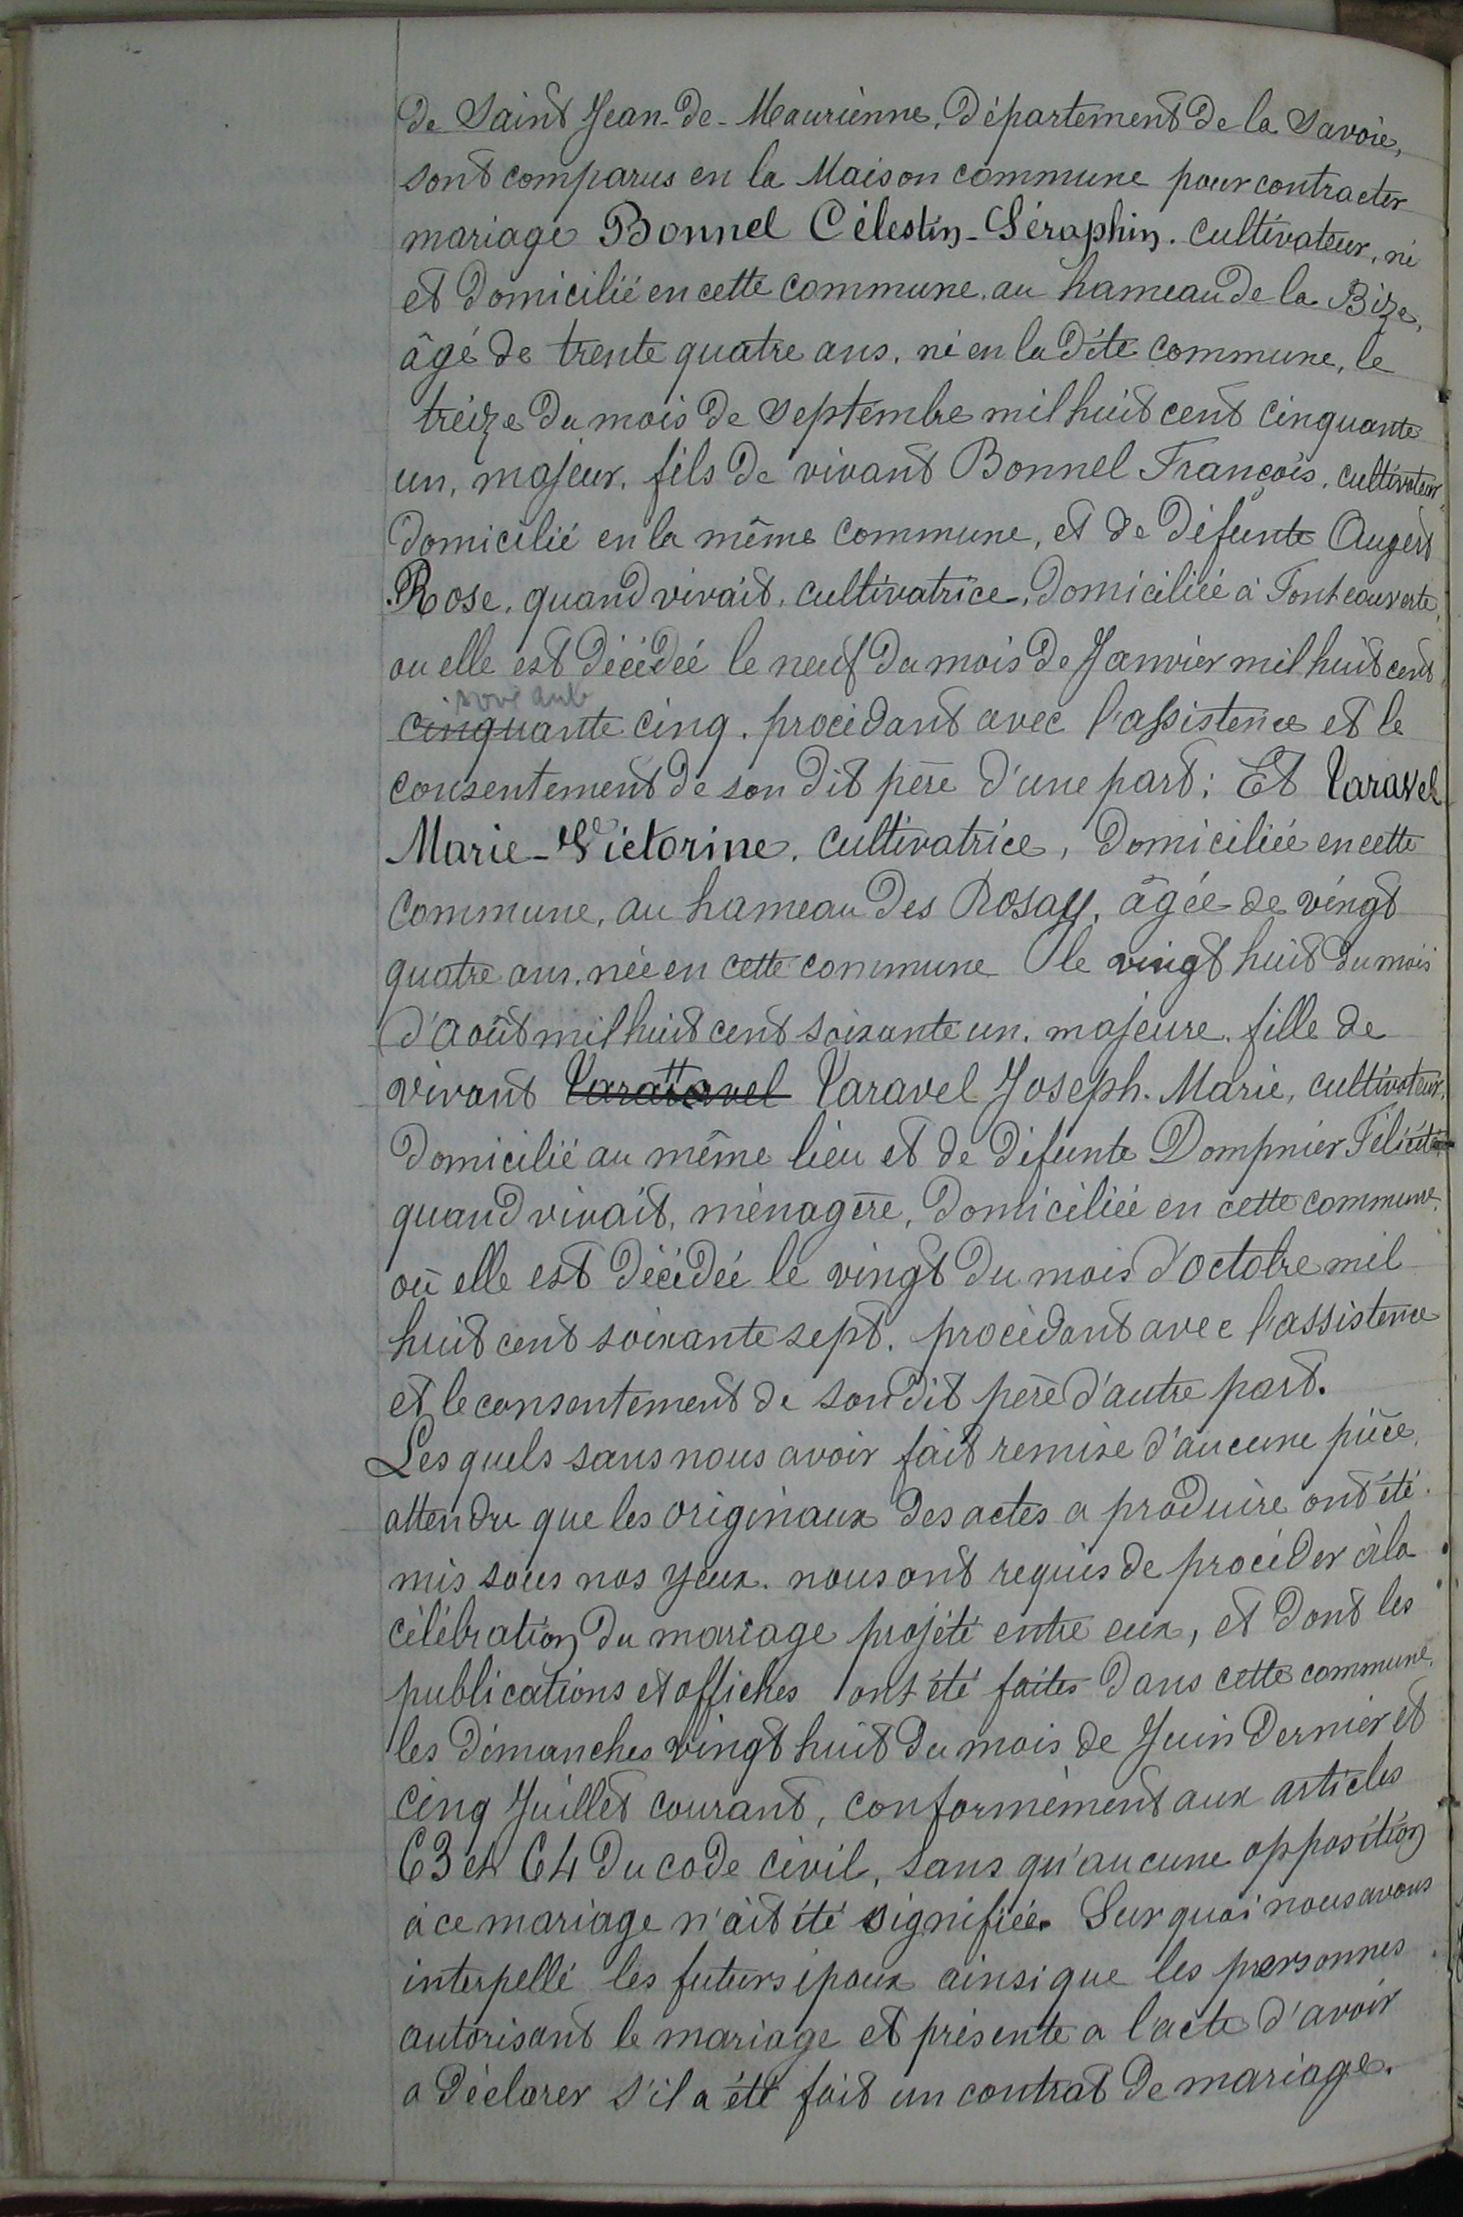 de Saint Jean-de-Maurienne, Département de la Savoie,
sont comparus en la Maison commune pour contracter
mariage Bonnel Célestin-Séraphin. cultivateur, né
et domicilié en cette commune, au hameau de la Bize,
âgé de trente quatre ans, né en la dite commune, le
treize du mois de Septembre mil huit cent cinquante
un, majeur, fils de vivant Bonnel François, cultivateur
domicilié en la même commune, et de défunte Augert
Rose, quand vivait, cultivatrice, domiciliée à Fontcouverte,
ou elle est décédée le neuf du mois de Janvier mil huit cent
soixante
cinquante cinq, procédant avec l'assistence et le
consentement de son dit père d'une part; Et Varavel
Marie-Victorine, cultivatrice, domiciliée en cette
commune, au hameau des Rosay, âgée de vingt
quatre ans, née en cette commune le vingt huit du mois
d'Août mil huit cent soixante un, majeure, fille de
vivant Varattavel Varavel Joseph-Marie, cultivateur,
domicilié au même lieu et de défunte Dompnier Félicité
quand vivait, ménagère, domiciliée en cette commune,
où elle est décédée le vingt du mois d'octobre mil
huit cent soixante sept, procédant avec l'assistence
et le consentement de son dit père d'autre part.
Les quels sans nous avoir fait remise d'aucune pièce,
attendu que les originaux des actes a produire ont été
mis sous nos yeux, nous ont requis de procéder à la
célébration du mariage projété entre eux, et dont les
publications et affiches ont été faites dans cette commune,
les dimanches vingt huit du mois de Juin dernier et
cinq Juillet courant, conformément aux articles
63 et 64 du code civil, sans qu'aucune opposition
à ce mariage n'ait été signifiée. Sur quoi nous avons
interpellé les futurs époux ainsi que les personnes
autorisant le mariage et présente a l'acte d'avoir
a déclarer s'il a été fait un contrat de mariage.